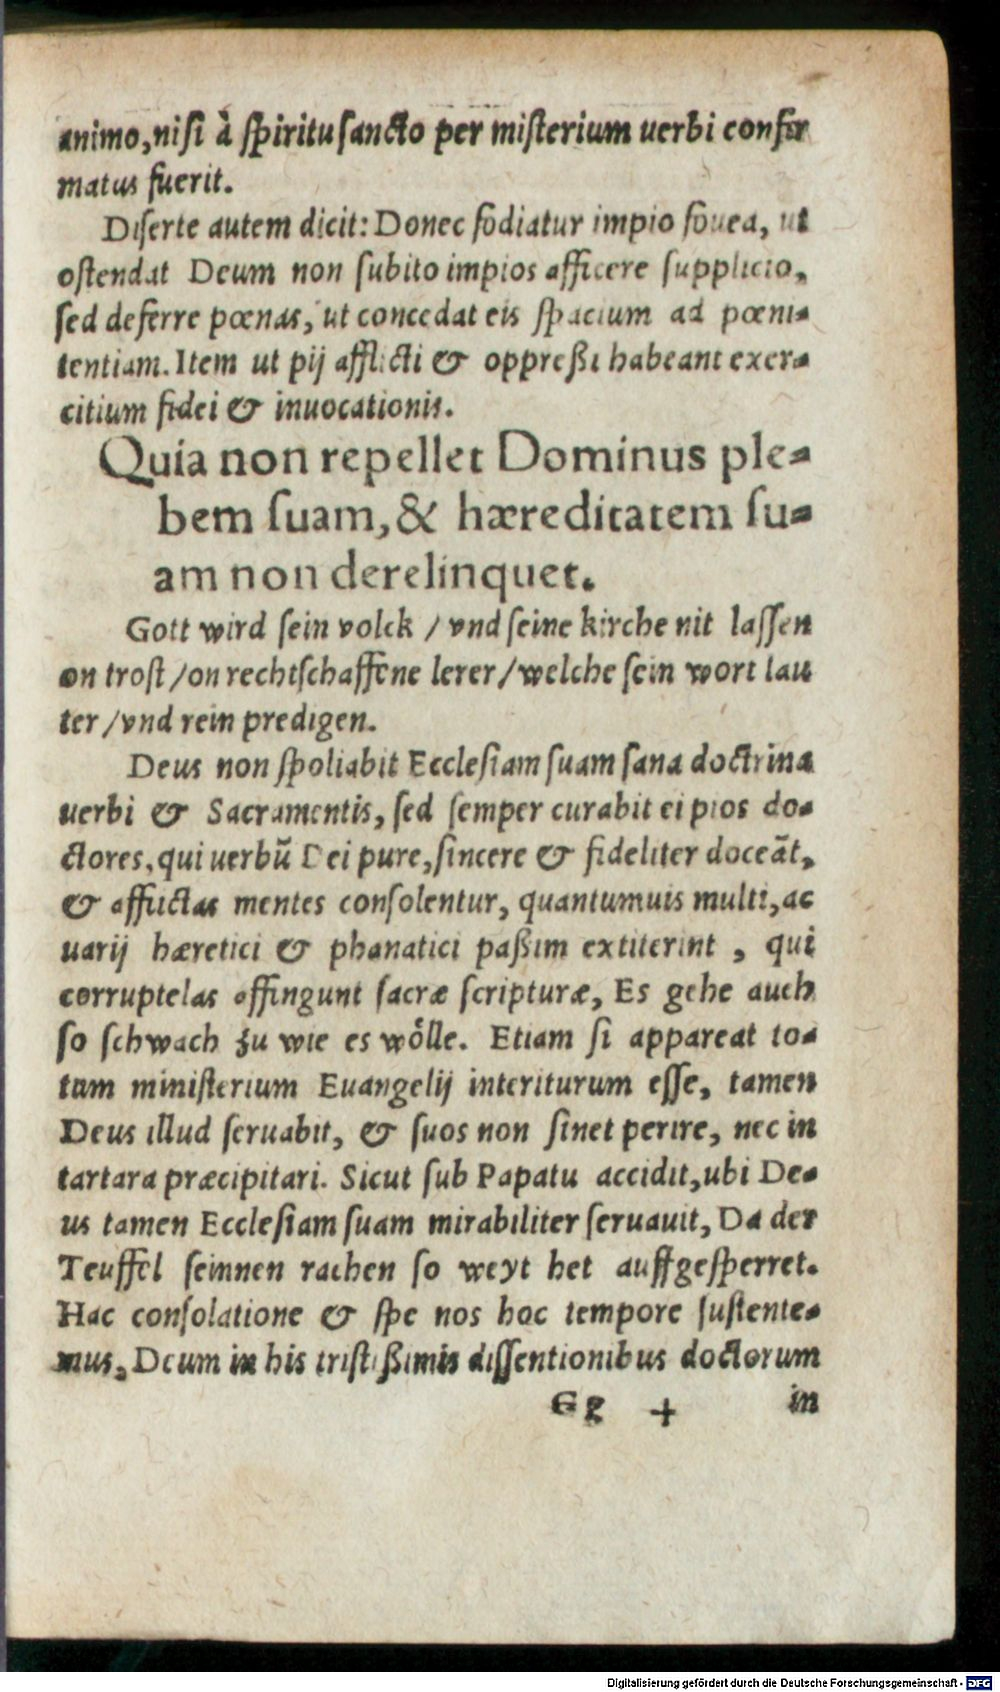 animo, nisi à spiritu sancto per misterium uerbi confir
matus fuerit.
Diserte autem dicit: Donec fodiatur impio fouea, ut
ostendat Deum non subito impios afficere supplicio,
sed deferre pœnas, ut concedat eis spacium ad pœni-
tentiam. Item ut pij afflicti & oppreßi habeant exer-
citium fidei & inuocationis.
Quia non repellet Dominus ple-
bem suam, & hæreditatem su-
am non derelinquet.
Gott wird sein volck / vnd seine kirche nit lassen
on trost / on rechtschaffene lerer / welche sein wort lau
ter / vnd rein predigen.
Deus non spoliabit Ecclesiam suam sana doctrina
uerbi & Sacramentis, sed semper curabit ei pios do-
ctores, qui uerbū Dei pure, sincere & fideliter doceāt,
& afflictas mentes consolentur, quantumuis multi, ac
uarij hæretici & phanatici paßim extiterint, qui
corruptelas offingunt sacræ scripturæ, Es gehe auch
so schwach zu wie es wölle. Etiam si appareat to-
tum ministerium Euangelij interiturum esse, tamen
Deus illud seruabit, & suos non sinet perire, nec in
tartara præcipitari. Sicut sub Papatu accidit, ubi De-
us tamen Ecclesiam suam mirabiliter seruauit, Da der
Teuffel seinnen rachen so weyt het auffgesperret.
Hac consolatione & spe nos hoc tempore sustente-
mus, Deum in his tristißimis dissentionibus doctorum
Gg + in
Digitalisierung gefördert durch die Deutsche Forschungsgemeinschaft - DFG